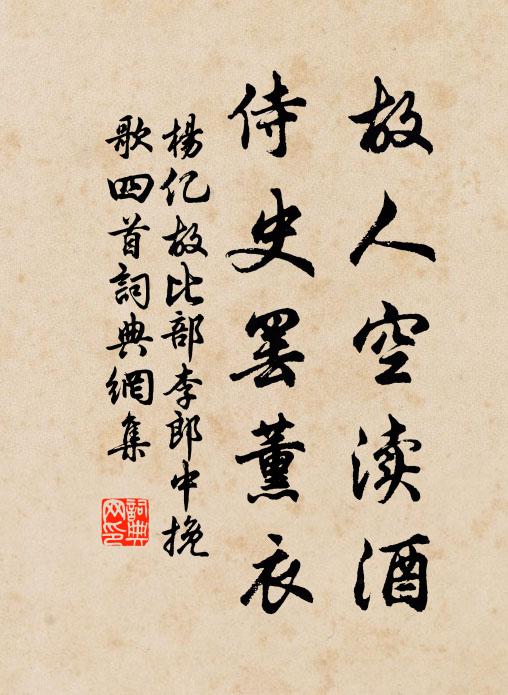 故人空渍酒
侍史罢薰衣
楊亿故比部李郎中挽
歌四首詞典網集
詞典网印